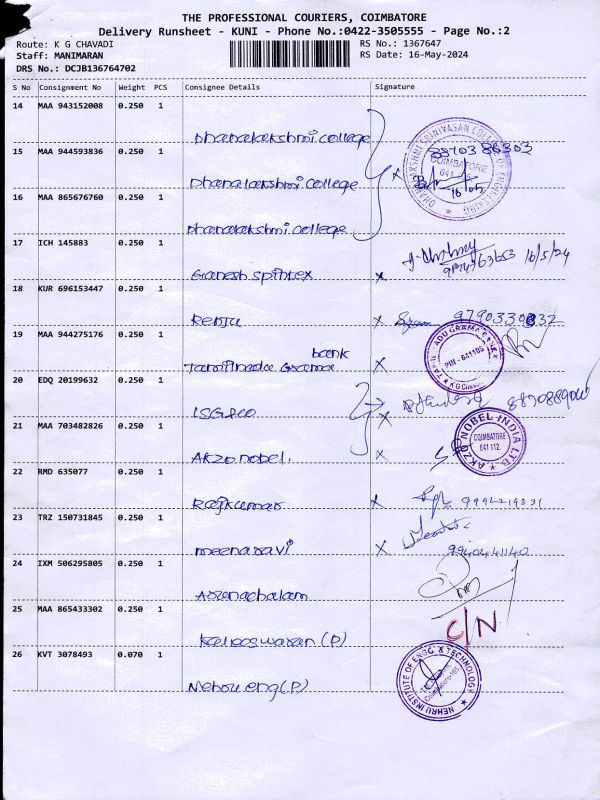 THE PROFESSIONAL COURIERS, COIMBATORE
Delivery Runsheet - KUNI - Phone No.:0422-3505555 - Page No.:2
Route: K G CHAVADI
RS No.: 1367647
Staff: MANIMARAN
RS Date: 16-May-2024
DRS No.: DCJB136764702
S No Consignment No Weight PCS Consignee Details Signature
14 MAA 943152008 0.250 1
Dhanalakshmi college
15 MAA 944593836 0.250 1
Dhanalakshmi college
16 MAA 865676760 0.250 1
Dhanalakshmi college
COIMBATORE
16/05
17 ICH 145883 0.250 1
Ganesh spintex
16/5/24
18 KUR 696153447 0.250 1
Renju
19 MAA 944275176 0.250 1
bank
Tamilnadu Grama
PIN - 641105
K G Chavadi
20 EDQ 20199632 0.250 1
LSG&CO
21 MAA 703482826 0.250 1
Akzo nobel.
AKZO NOBEL INDIA LTD
COIMBATORE
641 112.
22 RMD 635077 0.250 1
Rajkumar
23 TRZ 150731845 0.250 1
meenaravi
9940441140
24 IXM 506295805 0.250 1
Arunachalam
25 MAA 865433302 0.250 1
Kaleeswaran (P)
C/N
26 KVT 3078493 0.070 1
Nehru eng (P)
NEHRU INSTITUTE OF ENGG. & TECHNOLOGY